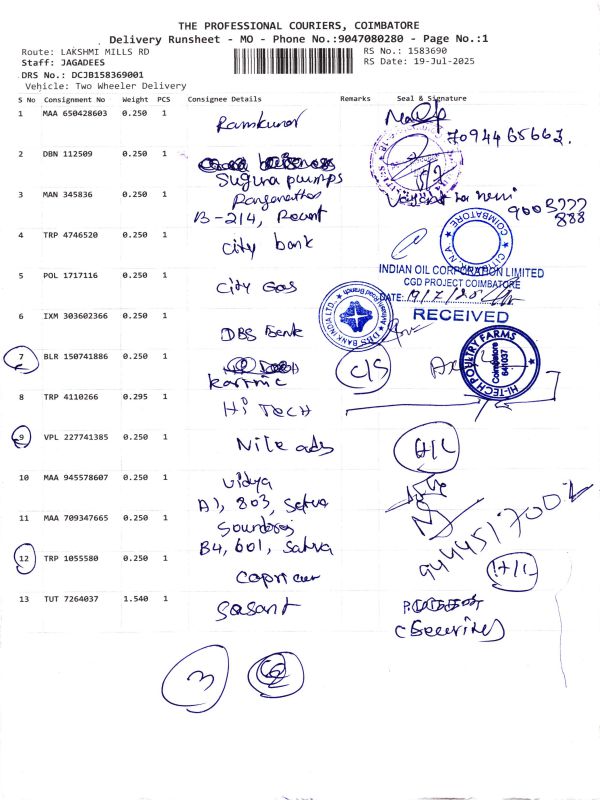 THE PROFESSIONAL COURIERS, COIMBATORE
Delivery Runsheet - MO - Phone No.:9047080280 - Page No.:1
Route: LAKSHMI MILLS RD
RS No.: 1583690
Staff: JAGADEES
RS Date: 19-Jul-2025
DRS No.: DCJB158369001
Vehicle: Two Wheeler Delivery
S No Consignment No Weight PCS Consignee Details Remarks Seal & Signature
1 MAA 650428603 0.250 1 Ramkumar
7094465662.
2 DBN 112509 0.250 1
Sugina pumps
3 MAN 345836 0.250 1 Ranganathan
B-214, Recent
9003777
888
4 TRP 4746520 0.250 1 City bank
CITI BANK N.A. COIMBATORE
5 POL 1717116 0.250 1 City Gas
INDIAN OIL CORPORATION LIMITED
CGD PROJECT COIMBATORE
DATE: 19/7/25
RECEIVED
6 IXM 303602366 0.250 1 DBS Bank
DBS BANK INDIA LTD.
7 BLR 150741886 0.250 1
karthic
C/S
HI-TECH POULTRY FARMS
Coimbatore
641037
8 TRP 4110266 0.295 1 Hi Tech
9 VPL 227741385 0.250 1 Nile ads
H/L
10 MAA 945578607 0.250 1 Vidya
A1, 803, Satva
11 MAA 709347665 0.250 1
B4, 601, Satva
12 TRP 1055580 0.250 1
H/L
13 TUT 7264037 1.540 1 Sasant
(Security)
3